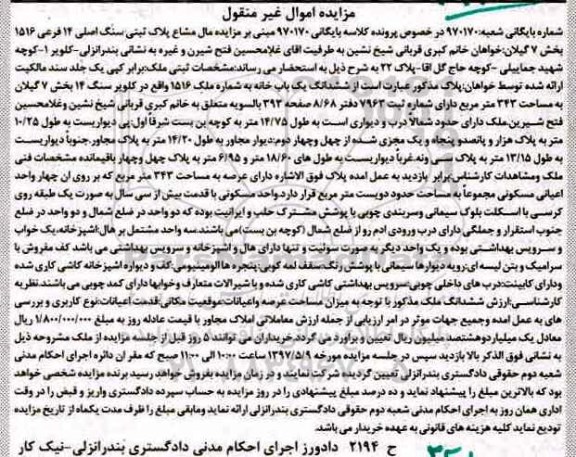 مزایده اموال غیر منقول
شماره بایگانی شعبه: ۹۷۰۱۷۰ در خصوص پرونده کلاسه بایگانی ۹۷۰۱۷۰ مبنی بر مزایده مال مشاع پلاک ثبتی سنگ اصلی ۱۴ فرعی ۱۵۱۶
بخش ۷ گیلان: خواهان خانم کبری قربانی شیخ نشین به طرفیت اقای غلامحسین فتح شیرین و غیره به نشانی بندرانزلی-کلویر ۱-کوچه
شهید جماییلی -کوچه حاج گل اقا-پلاک ۲۲ به شرح ذیل به استحضار می رساند: مشخصات ثبتی ملک: برابر کپی یک جلد سند مالکیت
ارائه شده توسط خواهان: پلاک مذکور عبارت است از ششدانگ یک باب خانه به شماره ملک ۱۵۱۶ واقع در کلویر سنگ ۱۴ بخش ۷ گیلان
به مساحت ۳۴۳ متر مربع دارای شماره ثبت ۷۹۶۳ دفتر ۸/۶۸ صفحه ۳۹۳ بالسویه متعلق به خانم کبری قربانی شیخ نشین و غلامحسین
فتح شیرین.ملک دارای حدود شمالاً درب و دیواری است به طول ۱۴/۷۵ متر به کوچه بن بست شرقاً اول: پی دیواریست به طول ۱۰/۲۵
متر به پلاک هزار و پانصدو پنجاه و یک مجزی شده از چهل وچهار دوم: دیوار مجاور به طول ۱۴/۲۰ متر به پلاک مجاور.جنوباً دیواریست
به طول ۱۳/۱۵ متر به پلاک سی ونه.غرباً دیواریست به طول های ۱۸/۶۰ متر و ۶/۹۵ متر به پلاک چهل وچهار باقیمانده مشخصات فنی
ملک ومشاهدات کارشناس: برابر بازدید به عمل امده پلاک فوق الاشاره دارای عرصه به مساحت ۳۴۳ متر مربع که بر روی ان چهار واحد
اعیانی مسکونی مجموعاً به مساحت حدود دویست متر مربع قرار دارد.واحد مسکونی با قدمت بیش از سی سال به صورت یک طبقه روی
کرسی با اسکلت بلوک سیمانی وسربندی چوبی با پوشش مشترک حلب و ایرانیت بوده که دو واحد در ضلع شمال و دو واحد در ضلع
جنوب استقرار و جملگی دارای درب ورودی ادم رو از ضلع شمال (کوچه بن بست) می باشند.سه واحد مشتمل بر هال: اشپزخانه، یک خواب
و سرویس بهداشتی بوده و یک واحد دیگر به صورت سوئیت و تنها دارای هال و اشپزخانه و سرویس بهداشتی می باشد کف مفروش با
سرامیک و بتن لیسه ای: رویه دیوارها سیمانی با پوشش رنگ، سقف لمه کوبی: پنجره ها الومینیومی: کف و دیواره اشپزخانه کاشی کاری شده
ودارای کابینت: درب های داخلی چوبی: سرویس بهداشتی کاشی کاری شده و با شیرالات متعارف وخوابها دارای کمد چوبی می باشند.نظریه
کارشناسی: ارزش ششدانگ ملک مذکور با توجه به میزان مساحت عرصه واعیانات: موقعیت مکانی: قدمت اعیانات: نوع کاربری و بررسی
های به عمل امده وجمیع جهات موثر در امر ارزیابی از جمله ارزش معاملاتی املاک مجاور با قیمت عادله روز به مبلغ ۱/۸۰۰/۰۰۰/۰۰۰ ریال
معادل یک میلیاردوهشتصد میلیون ریال تعیین و براورد می گردد.خریداران می توانند ۵ روز قبل از جلسه مزایده از ملک مشروحه ذیل
به نشانی فوق الذکر بالا بازدید سپس در جلسه مزایده مورخه ۱۳۹۷/۵/۹ ساعت ۱۰:۰۰ الی ۱۱:۰۰ صبح که مقر ان دائره اجرای احکام مدنی
شعبه دوم حقوقی دادگستری بندرانزلی تعیین گردیده شرکت نمایند، و در زمان مزایده بفروش خواهد رسید برنده مزایده شخصی خواهد
بود که بالاترین مبلغ را پیشنهاد نماید و ده درصد مبلغ پیشنهادی را در روز مزایده به حساب سپرده دادگستری واریز و قبض را در وقت
اداری همان روز به اجرای احکام مدنی شعبه دوم حقوقی دادگستری بندرانزلی ارائه نماید ومابقی مبلغ را ظرف مدت یکماه از تاریخ مزایده
تودیع نماید کلیه هزینه های قانونی به عهده خریدار می باشد.
ح ۲۱۹۴ دادورز اجرای احکام مدنی دادگستری بندرانزلی-نیک کار